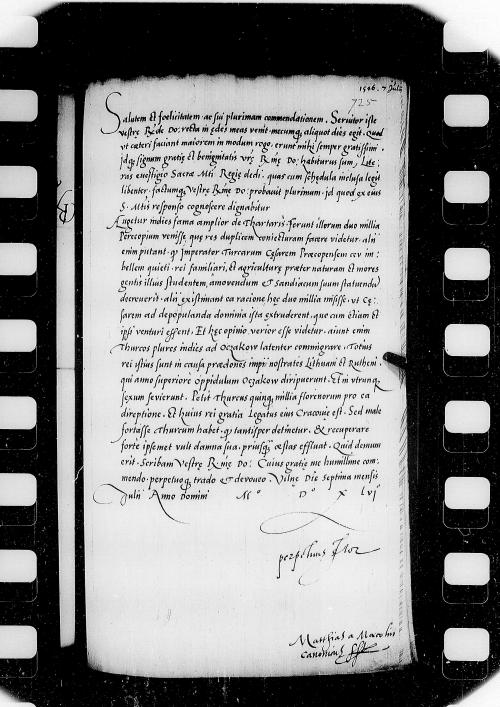 1546. 7 Julii
725
Salutem et foelicitatem ac sui plurimam commendationem. Seruitor iste
vestrę R. Do: recta in ędes meas venit. mecumq, aliquot dies egit. Quod
vt cæteri faciant maiorem in modum rog. erunt mihi semper gratissimi.
Idq, signum gratię et benignitatis vrę R mę Do: habiturus sum. Lite:
ras euestigio Sacræ Mti Regię dedi. quas cum schędula inclusa legit
libenter. factumq, Vestrę R mę Do: probauit plurimum. id quod ex eius
S. Mtis responso cognoscere dignabitur
Augetur indies fama amplior de Thartaris. ferunt illorum duo millia
Perecopium venisse, quę res duplicem coniecturam facere videtur. alii
enim putant. q Imperator Turcarum Cęsarem Præcopensem ceu im:
bellem quieti. rei familiari, et agriculturę præter naturam et mores
gentis illius studentem, amovendum et Sandiacum suum statuendū
decreuerit. alii existimant ea racione hęc duo millia misisse. vt Cę:
sarem ad depopulanda dominia ista extruderent. quo cum etium et
ipsi venturi essent. Et hęc opinio verior esse videtur. aiunt enim
Thurcos plures indies ad Oczakow latenter commigrare. Totius
rei istius sunt in causa prædones impii nostrates Lithuani et Rutheni.
qui anno superiore oppidulum Oczakow diripuerunt. Et in vtrunq,
sexum sevierunt. Petit Thurcus quinq, millia florenorum pro ea
direptione. Et huius rei gratia Legatus eius Cracouię est. Sed male
fortasse Thurcum habet. q tantisper detinetur. & recuperare
forte ipsemet vult damna sua. priusq, æstas effluat. Quid demum
erit. Scribam Vestrę R mę Do: Cuius gratię me humillime com:
mendo. perpetuoq, trado et devoveo. Vilnę Die septima mensis
Julii Anno Domini Mo Do X lvjo
perpetuus
Matthias a
canonicus